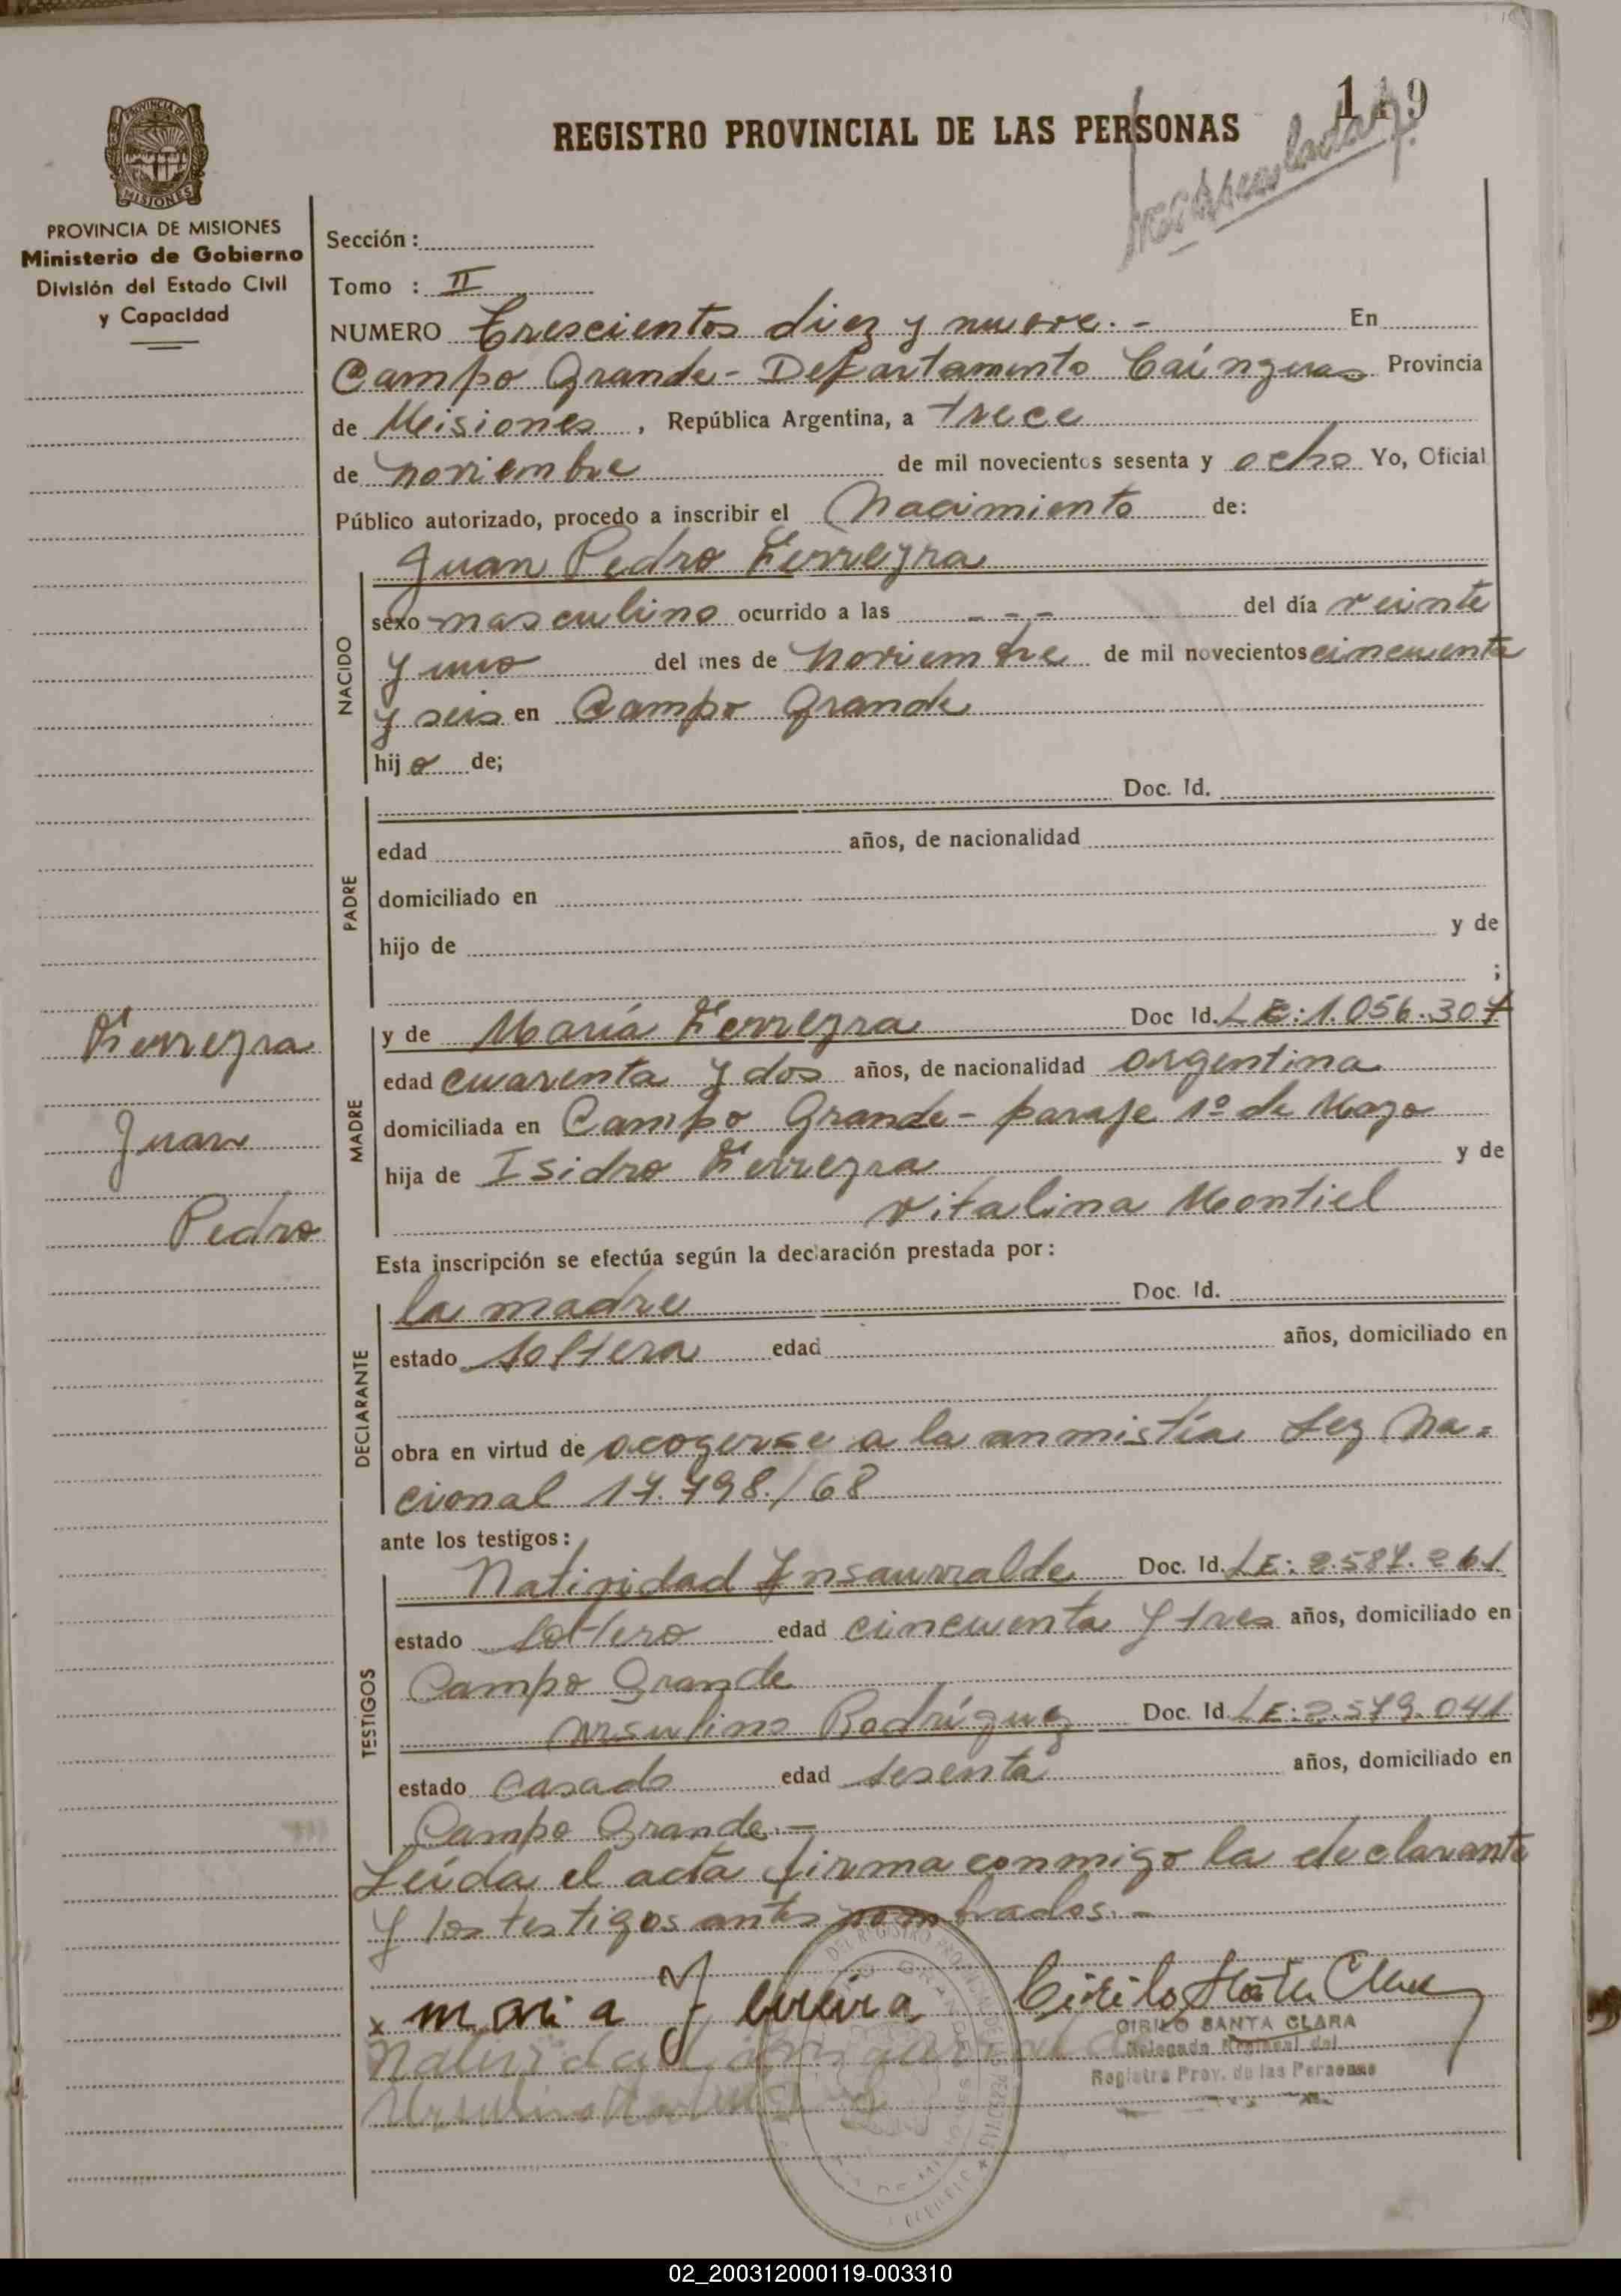 119
REGISTRO PROVINCIAL DE LAS PERSONAS
PROVINCIA DE
MISIONES
PROVINCIA DE MISIONES
Ministerio de Gobierno
División del Estado Civil
y Capacidad
Sección :
Tomo : II
NUMERO Trescientos diez y nueve. - En
Campo Grande - Departamento Caínguas Provincia
de Misiones, República Argentina, a trece
de noviembre de mil novecientos sesenta y ocho Yo, Oficial
Público autorizado, procedo a inscribir el Nacimiento de:
Juan Pedro Ferreyra
NACIDO
sexo masculino ocurrido a las - - - del día veinte
y uno del mes de noviembre de mil novecientos cincuenta
y seis en Campo Grande
hijo de;
PADRE
Doc. Id.
edad años, de nacionalidad
domiciliado en
hijo de y de
;
Ferreyra
Juan
Pedro
MADRE
y de María Ferreyra Doc Id. LE: 1.056.307
edad cuarenta y dos años, de nacionalidad argentina
domiciliada en Campo Grande - paraje 1º de Mayo
hija de Isidro Ferreyra y de
Vitalina Montiel
Esta inscripción se efectúa según la declaración prestada por:
DECLARANTE
la madre Doc. Id.
estado soltera edad años, domiciliado en
obra en virtud de acogerse a la anmistía Ley Na=
cional 17.798./68
ante los testigos:
TESTIGOS
Natividad Insaurralde Doc. Id. LE: 2.587.261
estado soltero edad cincuenta y tres años, domiciliado en
Campo Grande
Ursulino Rodríguez Doc. Id. LE: 2.579.041
estado casado edad sesenta años, domiciliado en
Campo Grande. -
Leída el acta firma conmigo la declarante
y los testigos antes nombrados. -
x maria Ferreira Cirilo Santa Clara
CIRILO SANTA CLARA
Delegado Regional del
Registro Prov. de las Personas
02_200312000119-003310